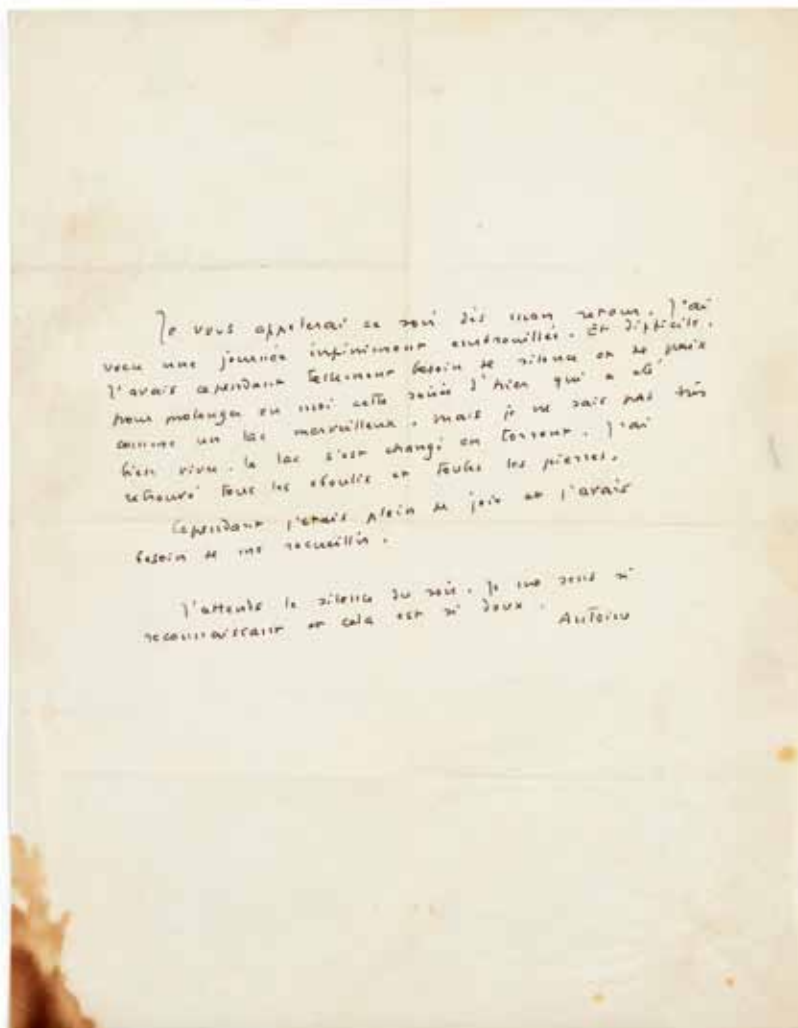 Je vous appelerai ce soir dès mon retour. J'ai
vécu une journée infiniment embrouillée. Et difficile.
J'avais cependant tellement besoin de silence et de paix
pour prolonger en moi cette soirée d'hier qui a été
comme un lac merveilleux. Mais je ne sais pas très
bien vivre. Le lac s'est changé en torrent. J'ai
retrouvé tous les éboulis et toutes les pierres.
Cependant j'étais plein de joie et j'avais
besoin de me recueillir.
J'attends le silence du soir. Je me sens si
reconnaissant et cela est si doux.
Antoine